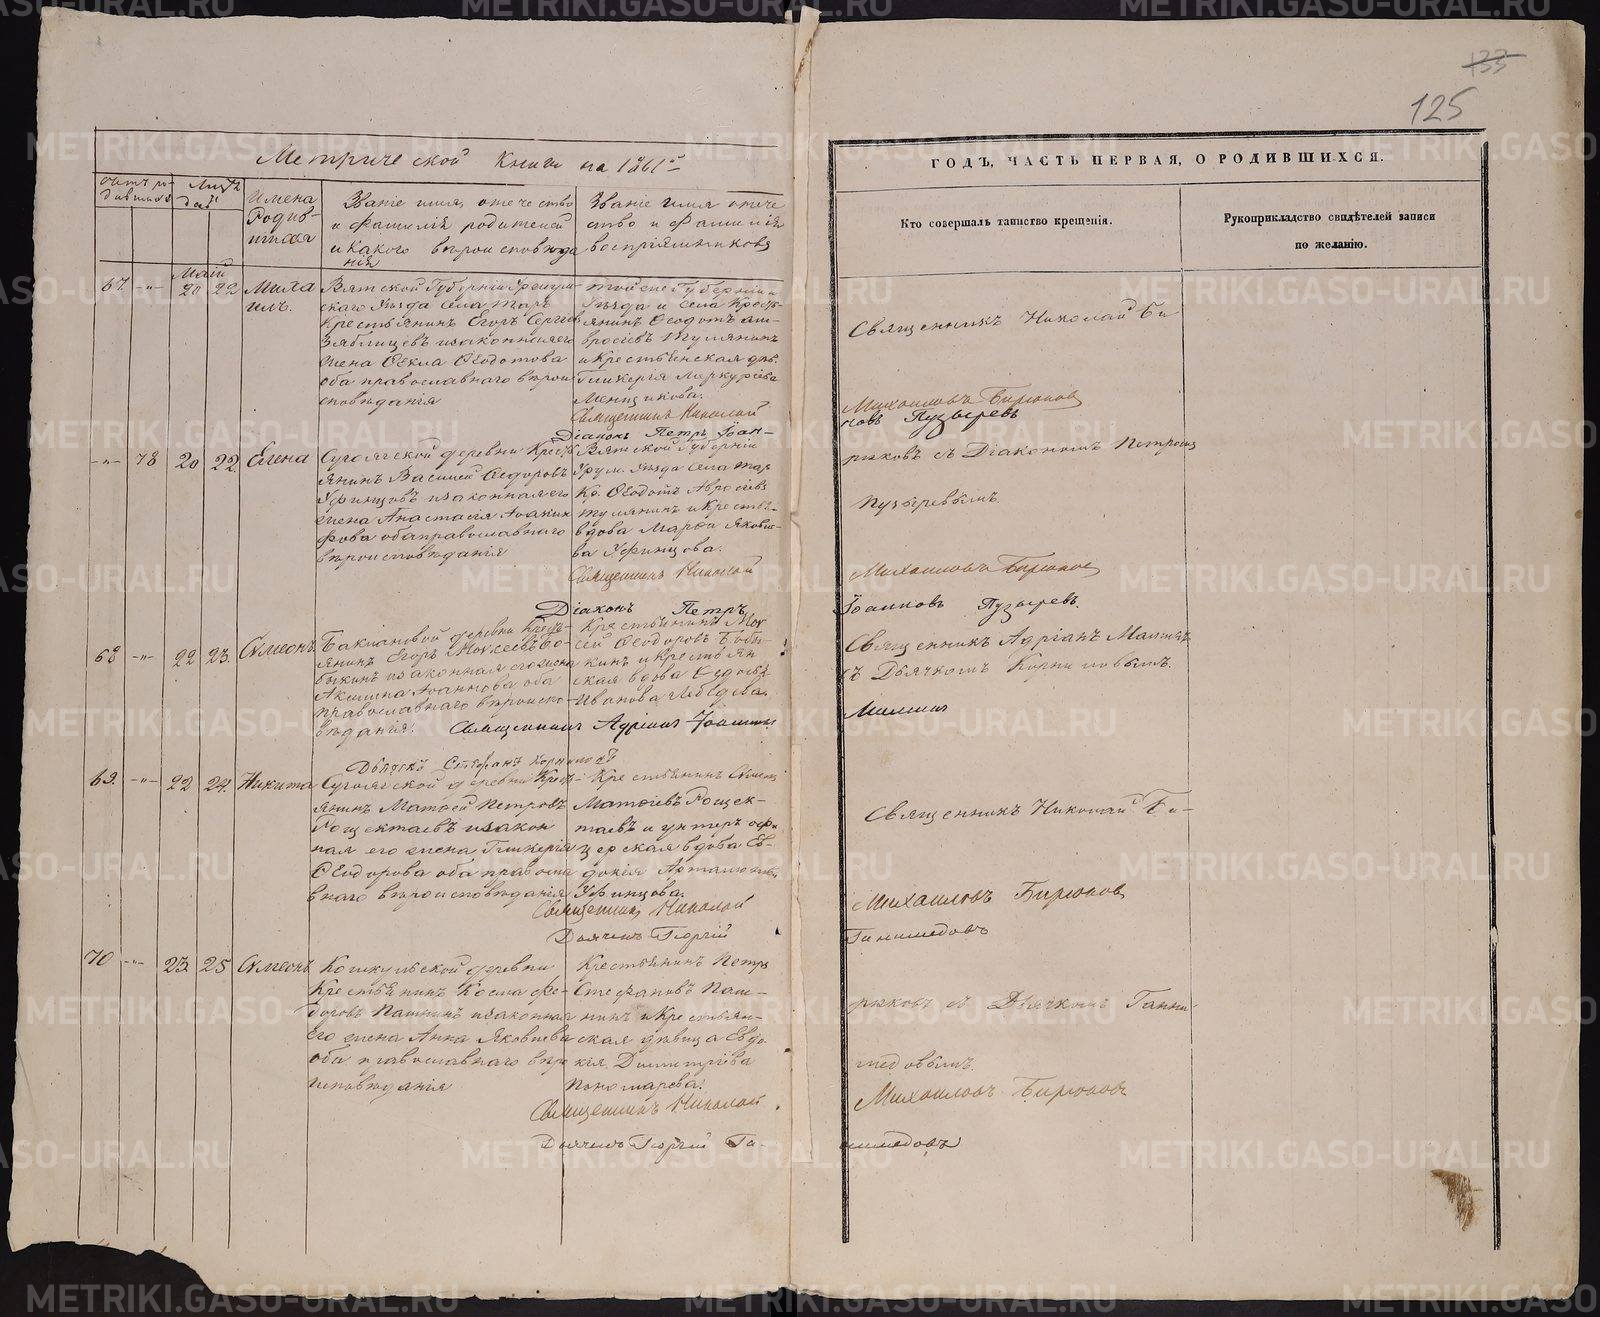 133
125
Метрической книги на 1861й
ГОДЪ, ЧАСТЬ ПЕРВАЯ, О РОДИВШИХСЯ.
Счетъ ро-
дившихся
дни
Имена
Родив-
шихся
Званіе имя, отечество
и фамилія родителей
и какого вѣроисповѣда
нія
Званіе имя отече
ство и фамилія
воспріемниковъ
Кто совершалъ таинство крещенія.
Рукоприкладство свидѣтелей записи
по желанію.
Май
67. -"- 20 22 Миха
илъ.
Вятской Губерніи
скаго Уѣзда села
Крестьянинъ Егоръ Сергѣевъ
Зяблицевъ изаконная его
жена Ѳекла Ѳеодотова
оба православнаго вѣрои
сповѣданія
тойже Губерніи и
Уѣзда и села Крест
янинъ Ѳеодотъ Ам-
вросіевъ Тулянинъ
и Крестьянская дѣв.
Гликерія Меркуріева
Меншикова.
Священникъ Николай
Діаконъ Петръ Іоан-
Священникъ Николай Би
Михайловъ Бирюков
новъ Пузыревъ
-"- 78 20 22. Елена
деревни Крест
янинъ Василей Ѳедоровъ
Уфинцовъ изаконная его
жена Анастасія Іоаким
фова оба православнаго
вѣроисповѣданія
Вятской Губерніи
Урум. Уѣзда села
Кр. Ѳеодотъ Авросіевъ
Тулянинъ и Кресть-
вдова Марѳа Яковле-
ва Уфинцова.
Священникъ Николай
Діаконъ Петръ
рюковъ съ Діакономъ Петромъ
Пузыревымъ
Михайловъ Бирюков
Іоанновъ Пузыревъ.
68 -"- 22 23. Симеонъ
Баклановой деревни Крест-
янинъ Егоръ Моисеевъ Бо-
быкинъ изаконная его жена
Акилина Іоаннова оба
православнаго вѣроиспо-
вѣданія.
Крестьянинъ Мои
сей Ѳеодоровъ Бобы
кинъ и Крестьян
ская вдова Ѳедосья
Иванова Лебедева.
Священникъ Адріанъ
Дьячекъ Стефанъ
Священникъ Адріанъ
съ Дьячкомъ Корниловымъ.
69. -"- 22 24. Никита
деревни Крест-
янинъ Матѳей Петровъ
Рощектаевъ изакон
ная его жена Гликерія
Ѳеодорова оба правосла
внаго вѣроисповѣданія
Крестьянинъ
Матѳіевъ Рощек-
таевъ и унтеръ офи
церская вдова Ев-
докія
Уфинцова.
Священникъ Николай
Дьячекъ Георгій
Священникъ Николай Би-
Михайловъ Бирюков
Ганимедовъ
70 -"- 23. 25 Симеонъ
Кошкульской деревни
Крестьянинъ Косма Ѳе-
доровъ Пашнинъ изаконная
его жена Анна Яковлева
оба православнаго вѣро
исповѣданія
Крестьянинъ Петръ
Стефановъ Паш-
нинъ и Крестьян-
ская дѣвица Евдо
кія Димитріева
Пономарева.
Священникъ Николай
Дьячекъ Георгій Га-
рюковъ съ Дьячкомъ Гани-
медовымъ.
Михайловъ Бирюков
нимедовъ